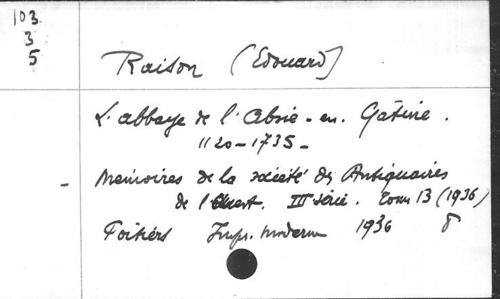 103
3
5
Raison (Edouard)
L'abbaye de l'Absie-en-Gâtine.
1120-1735-
- Memoires de la société des Antiquaires
de l'Ouest. III série. Tome 13 (1936)
Poitiers Impr. moderne 1936 8